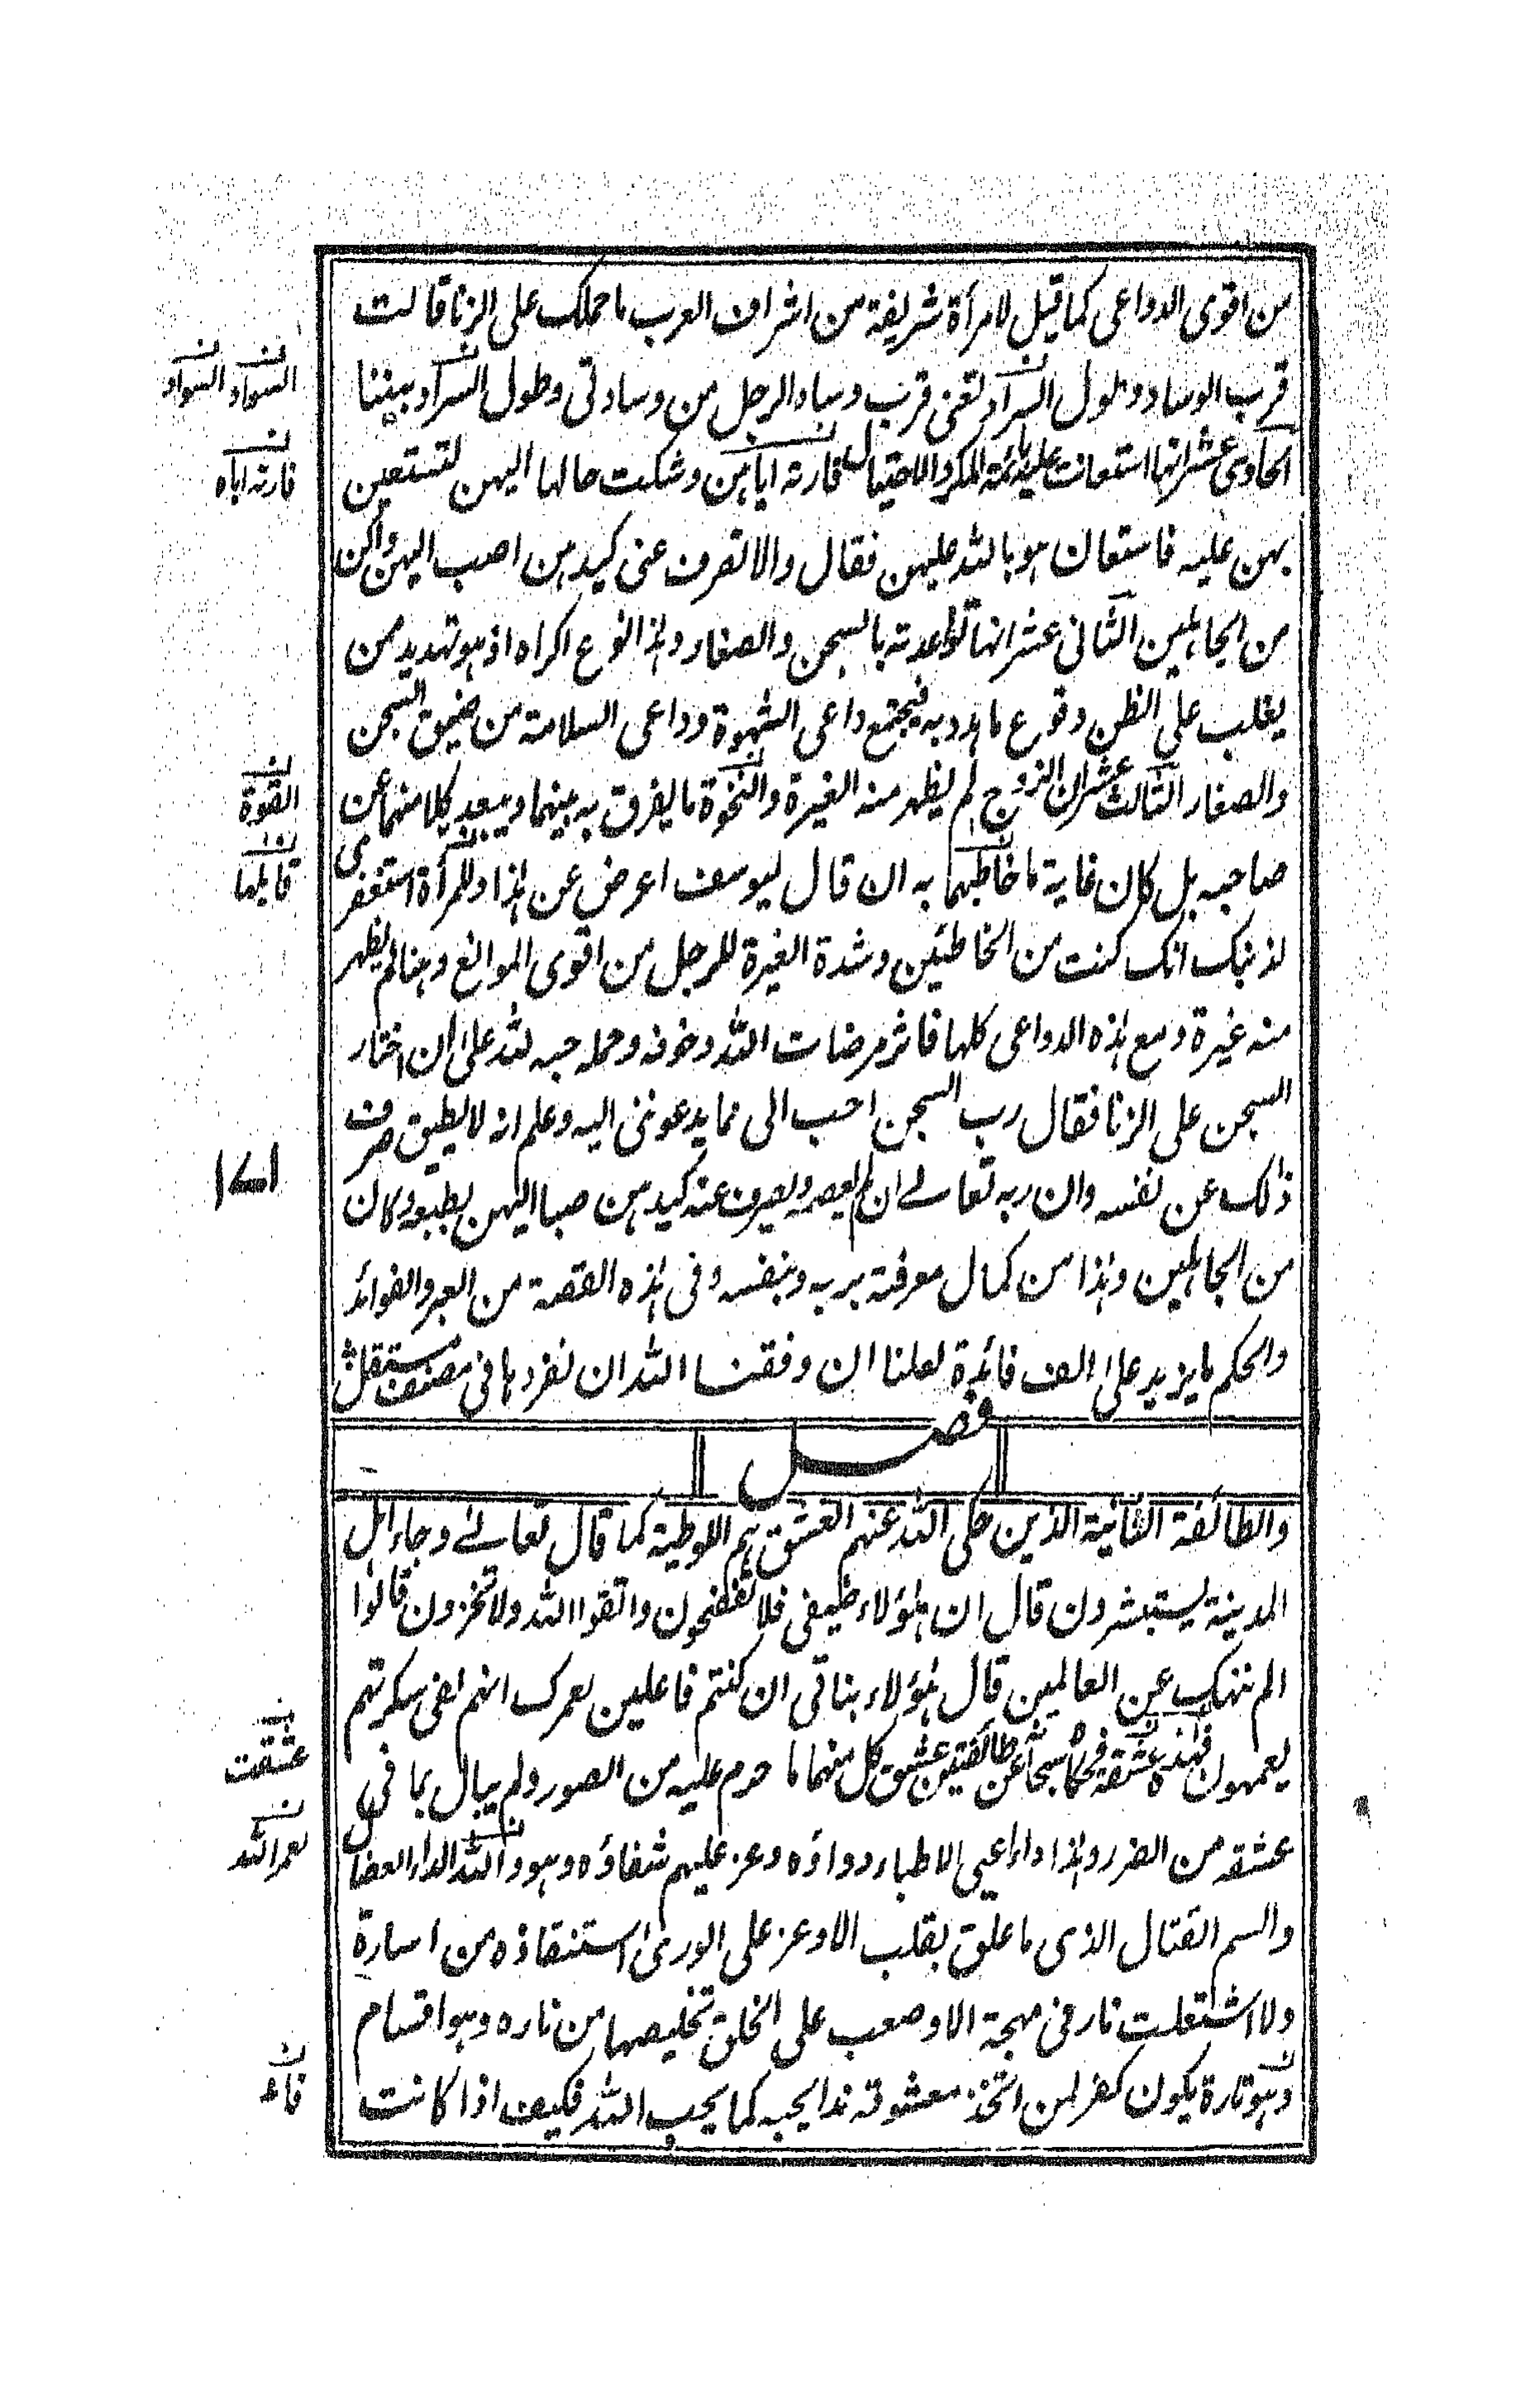 من اقوى الدواعى كما قيل لامرأة شريفة من اشراف العرب ما حملك على الزنا قالت
قرب الوساد وطول السراد تعنى قرب وساد الرجل من وسادتى وطول السراد بيننا
الحادى عشر انها استعانت عليه بائمة المكر والاحتيال فارته اياهن وشكت حالها اليهن لتستعين
بهن عليه فاستعان هو بالله عليهن فقال والا تصرف عنى كيدهن اصب اليهن واكن
من الجاهلين الثانى عشر انها تواعدته بالسجن والصغار وهذا نوع اكراه اذ هو تهديد من
يغلب على الظن وقوع ما هدد به فيجتمع داعى الشهوة وداعى السلامة من ضيق السجن
والصغار الثالث عشر ان الزوج لم يظهر منه الغيرة والنخوة ما يفرق به بينهما ويبعد كلا منهما عن
صاحبه بل كان غاية ما خاطبهما به ان قال ليوسف اعرض عن هذا وللمرأة استغفرى
لذنبك انك كنت من الخاطئين وشدة الغيرة للرجل من اقوى الموانع وهنا لم يظهر
منه غيرة ومع هذه الدواعى كلها فاثر مرضات الله وخوفه وحمله حبه لله على ان اختار
السجن على الزنا فقال رب السجن احب الى مما يدعوننى اليه وعلم انه لا يطيق صرف
ذلك عن نفسه وان ربه تعالى ان لم يعصمه ويصرف عنه كيدهن صبا اليهن بطبعه وكان
من الجاهلين وهذا من كمال معرفته بربه وبنفسه وفى هذه القصة من العبر والفوائد
والحكم ما يزيد على الف فائدة لعلنا ان وفقنا الله ان نفردها فى مصنف مستقل
فصل
والطائفة الثانية الذين حكى الله عنهم العشق هم اللوطية كما قال تعالى وجاء اهل
المدينة يستبشرون قال ان هؤلاء ضيفى فلا تفضحون واتقوا الله ولا تخزون قالوا
الم ننهك عن العالمين قال هؤلاء بناتى ان كنتم فاعلين لعمرك انهم لفى سكرتهم
يعمهون فهذه عشقه فحكاه سبحانه عن طائفتين عشق كل منهما ما حرم عليه من الصور ولم يبال بما فى
عشقه من الضرر وهذا داء اعيى الاطباء دواؤه وعز عليهم شفاؤه وهو والله الداء العضال
والسم القتال الذى ما علق بقلب الا وعز على الورى استنقاذه من اساره
ولا اشتعلت نار فى مهجة الا وصعب على الخلق تخليصها من ناره وهو اقسام
وهو تارة يكون كفرا لمن اتخذ معشوقه ندا يحبه كما يحب الله فكيف اذا كانت
السواد السواد
فارته اياه
القوة
قابلها
١٧١
عشقت
لعمر الله
فانه